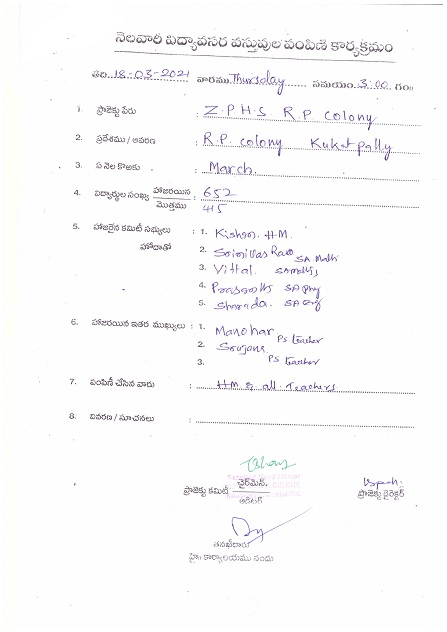 నెలవారి విద్యావసర వస్తువుల పంపిణి కార్యక్రమం
తేది. 18-03-2021 వారము Thursday సమయం. 3:00 గం॥
1. ప్రాజెక్టు పేరు : Z.P.H.S R.P. Colony
2. ప్రదేశము / ఆవరణ : R.P. Colony Kukatpally
3. ఏ నెల కొఱకు : March.
4. విద్యార్థుల సంఖ్య హాజరయిన : 652
మొత్తము 415
5. హాజరైన కమిటీ సభ్యులు : 1. Kishan. HM.
హోదాతో 2. Srinivas Rao SA Math
3. Vittal. SA
4. Prasanth SA Phy
5. Sharada. SA Eng
6. హాజరయిన ఇతర ముఖ్యులు : 1. Manohar PS teacher
2. Soujanya PS teacher
3.
7. పంపిణీ చేసిన వారు : HM & all Teachers
8. వివరణ / సూచనలు :
ప్రాజెక్టు కమిటీ చైర్‌మెన్. ప్రాజెక్టు డైరెక్టర్
ఆడిటర్
తనఖీదారు
హై కార్యాలయము నందు